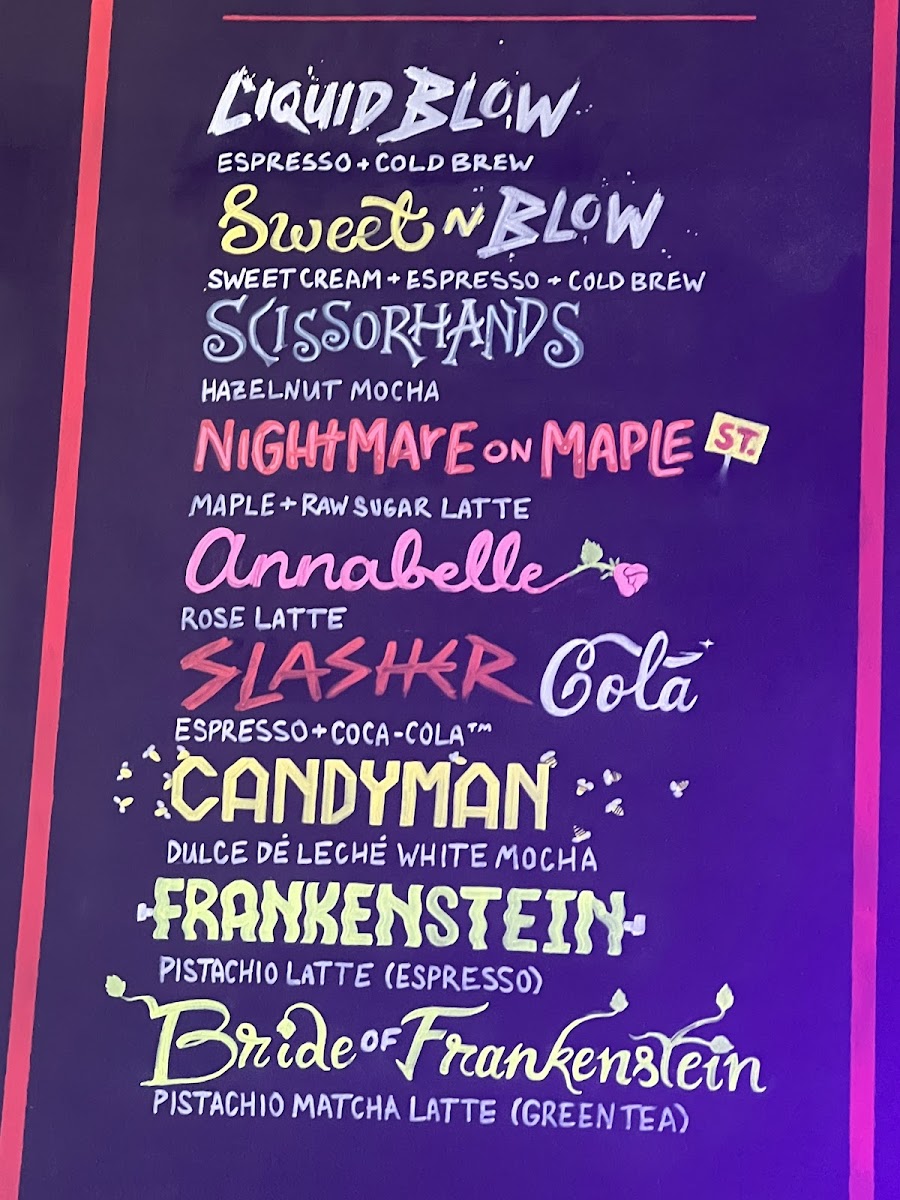 LIQUID BLOW
ESPRESSO + COLD BREW
Sweet N BLOW
SWEET CREAM + ESPRESSO + COLD BREW
SCISSORHANDS
HAZELNUT MOCHA
NIGHTMArE ON MAPLE ST.
MAPLE + RAW SUGAR LATTE
annabelle
ROSE LATTE
SLASHER Cola
ESPRESSO + COCA-COLA™
CANDYMAN
DULCE DÉ LECHÉ WHITE MOCHA
FRANKENSTEIN
PISTACHIO LATTE (ESPRESSO)
Bride OF Frankenstein
PISTACHIO MATCHA LATTE (GREEN TEA)